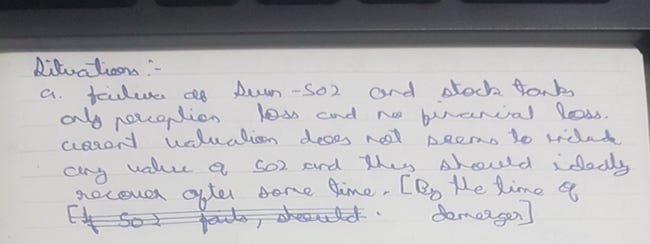 Situations:-
a. failure of Sun-S02 and stock tanks
only perception loss and no financial loss.
current valuation does not seems to include
any value of S02 and thus should ideally
recover after some time. [By the time of
[If S02 fails, should. demerger]